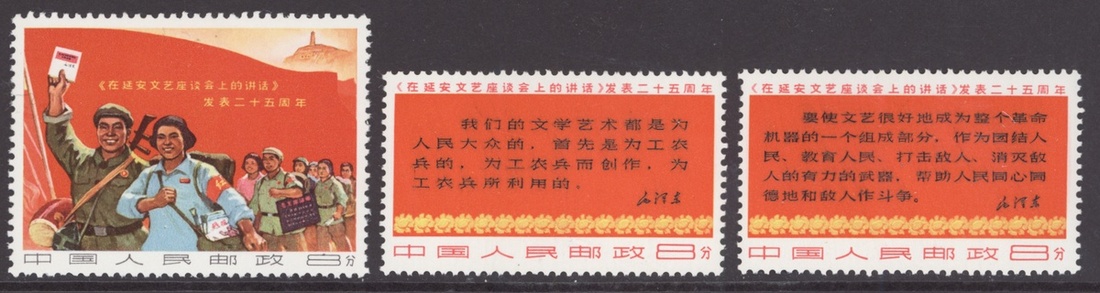 《在延安文艺座谈会上的讲话》
发表二十五周年
中国人民邮政 8分
《在延安文艺座谈会上的讲话》发表二十五周年
我们的文学艺术都是为
人民大众的，首先是为工农
兵的，为工农兵而创作，为
工农兵所利用的。
毛泽东
中国人民邮政8分
《在延安文艺座谈会上的讲话》发表二十五周年
要使文艺很好地成为整个革命
机器的一个组成部分，作为团结人
民、教育人民、打击敌人、消灭敌
人的有力的武器，帮助人民同心同
德地和敌人作斗争。
毛泽东
中国人民邮政8分